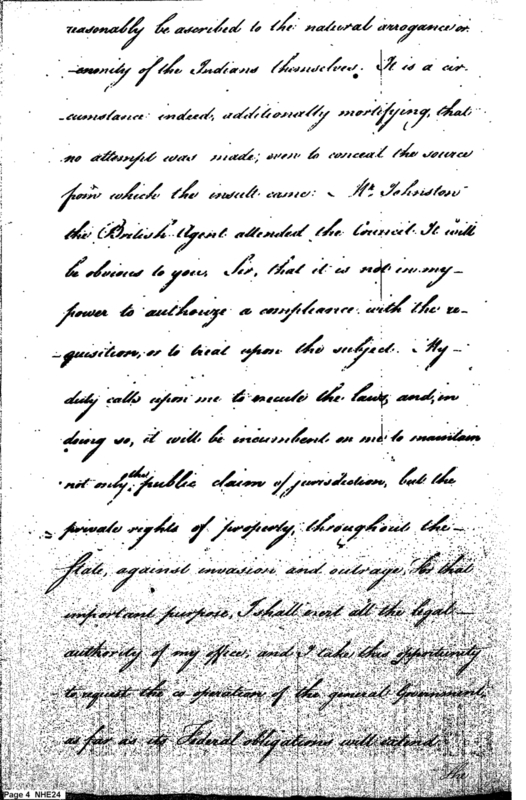 reasonably be ascribed to the natural arrogance or
enmity of the Indians themselves. It is a cir-
-cumstance indeed, additionally mortifying, that
no attempt was made, even to conceal the source
from which the insult came: Mr. Johnston
the British Agent attended the Council. It will
be obvious to you, Sir, that it is not in my
power to authorize a compliance with the re-
-quisition, or to treat upon the subject. My
duty calls upon me to execute the laws, and, in
doing so, it will be incumbent on me to maintain
not only the public claim of jurisdiction, but the
private rights of property, throughout the
State, against invasion and outrage. For that
important purpose, I shall exert all the legal
authority of my office, and I take this opportunity
to request the co operation of the general Government,
as far as its Federal obligations will extend.
The
Page 4 NHE24